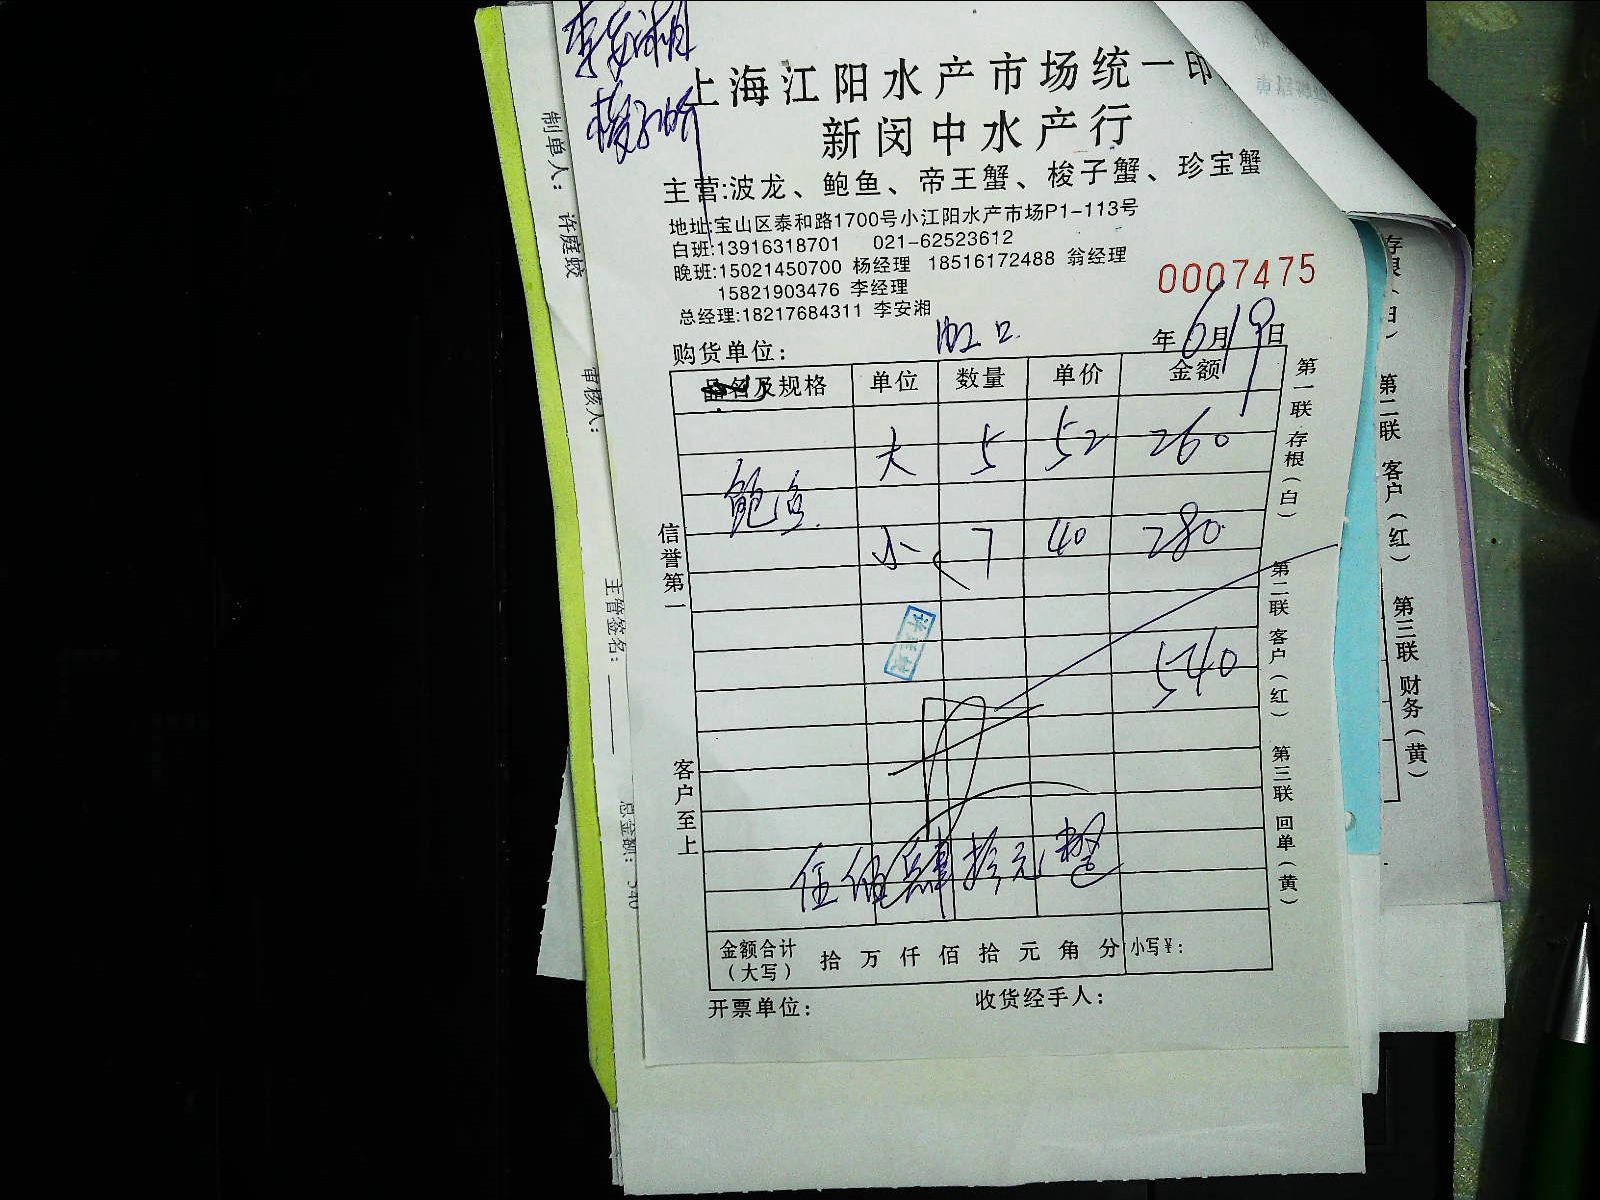 李安湘
上海江阳水产市场统一印
新闵中水产行
主营:波龙、鲍鱼、帝王蟹、梭子蟹、珍宝蟹
地址:宝山区泰和路1700号小江阳水产市场P1-113号
白班:13916318701 021-62523612
晚班:15021450700 杨经理 18516172488 翁经理
15821903476 李经理
总经理:18217684311 李安湘
0007475
购货单位: 虹口 年6月19日
品名及规格 单位 数量 单价 金额
大 5 52 260
鲍鱼
小 7 40 280
540
伍佰肆拾元整
金额合计(大写) 拾 万 仟 佰 拾 元 角 分 小写¥:
开票单位: 收货经手人:
信誉第一
客户至上
第一联 存根(白)
第二联 客户(红)
第三联 回单(黄)
制单人: 许庭蛟
审核人:
主管签名:
总金额: 540
存根(白)
第二联 客户(红)
第三联 财务(黄)